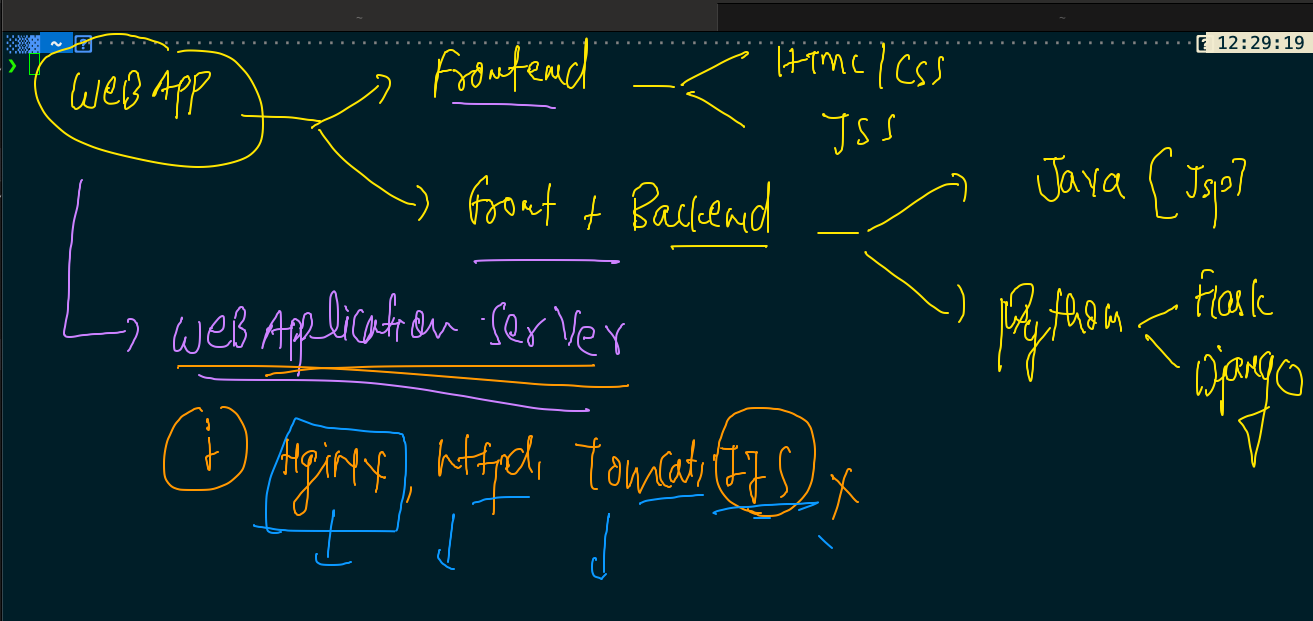 ~ ~
~ ? 12:29:19
❯
WEB APP
Frontend
Html/CSS
JSS
Front + Backend
Java [Jsp]
Python
Flask
Django
WEB Application Server
Nginx, httpd, Tomcat, IIS X